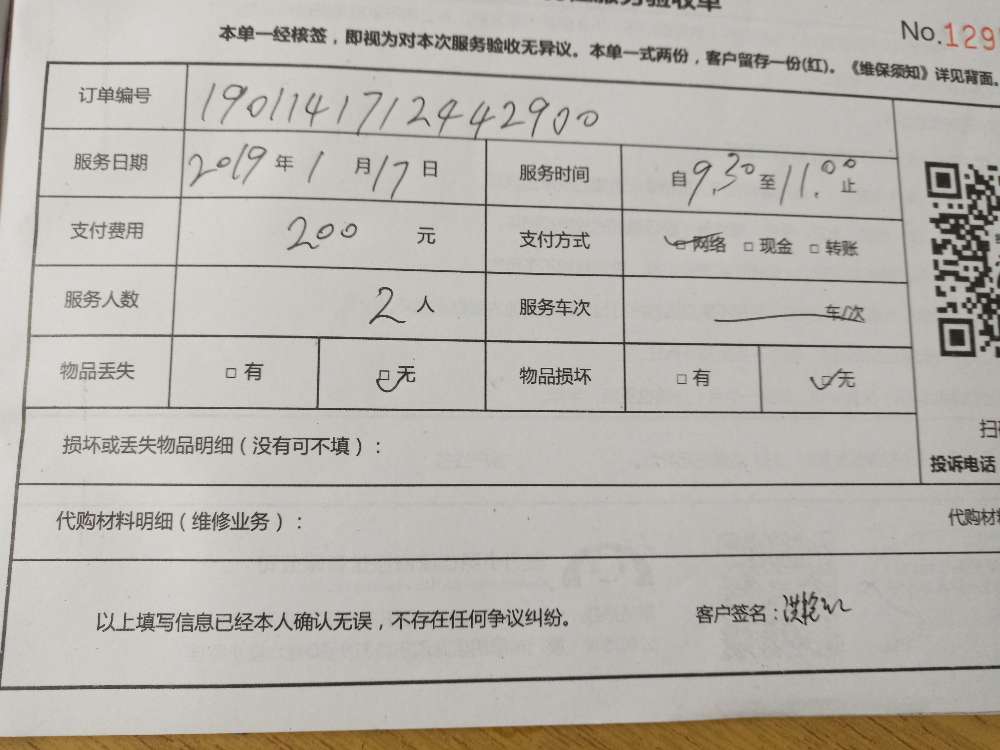 服务验收单
No.129
本单一经核签，即视为对本次服务验收无异议。本单一式两份，客户留存一份(红)。《维保须知》详见背面。
订单编号 1901141712442900
服务日期 2019 年 1 月 17 日 服务时间 自 9.30 至 11.00 止
支付费用 200 元 支付方式 □ 网络 □ 现金 □ 转账
服务人数 2 人 服务车次 车/次
物品丢失 □ 有 □ 无 物品损坏 □ 有 □ 无
损坏或丢失物品明细（没有可不填）：
扫
投诉电话
代购材料明细（维修业务）： 代购材料
以上填写信息已经本人确认无误，不存在任何争议纠纷。 客户签名：